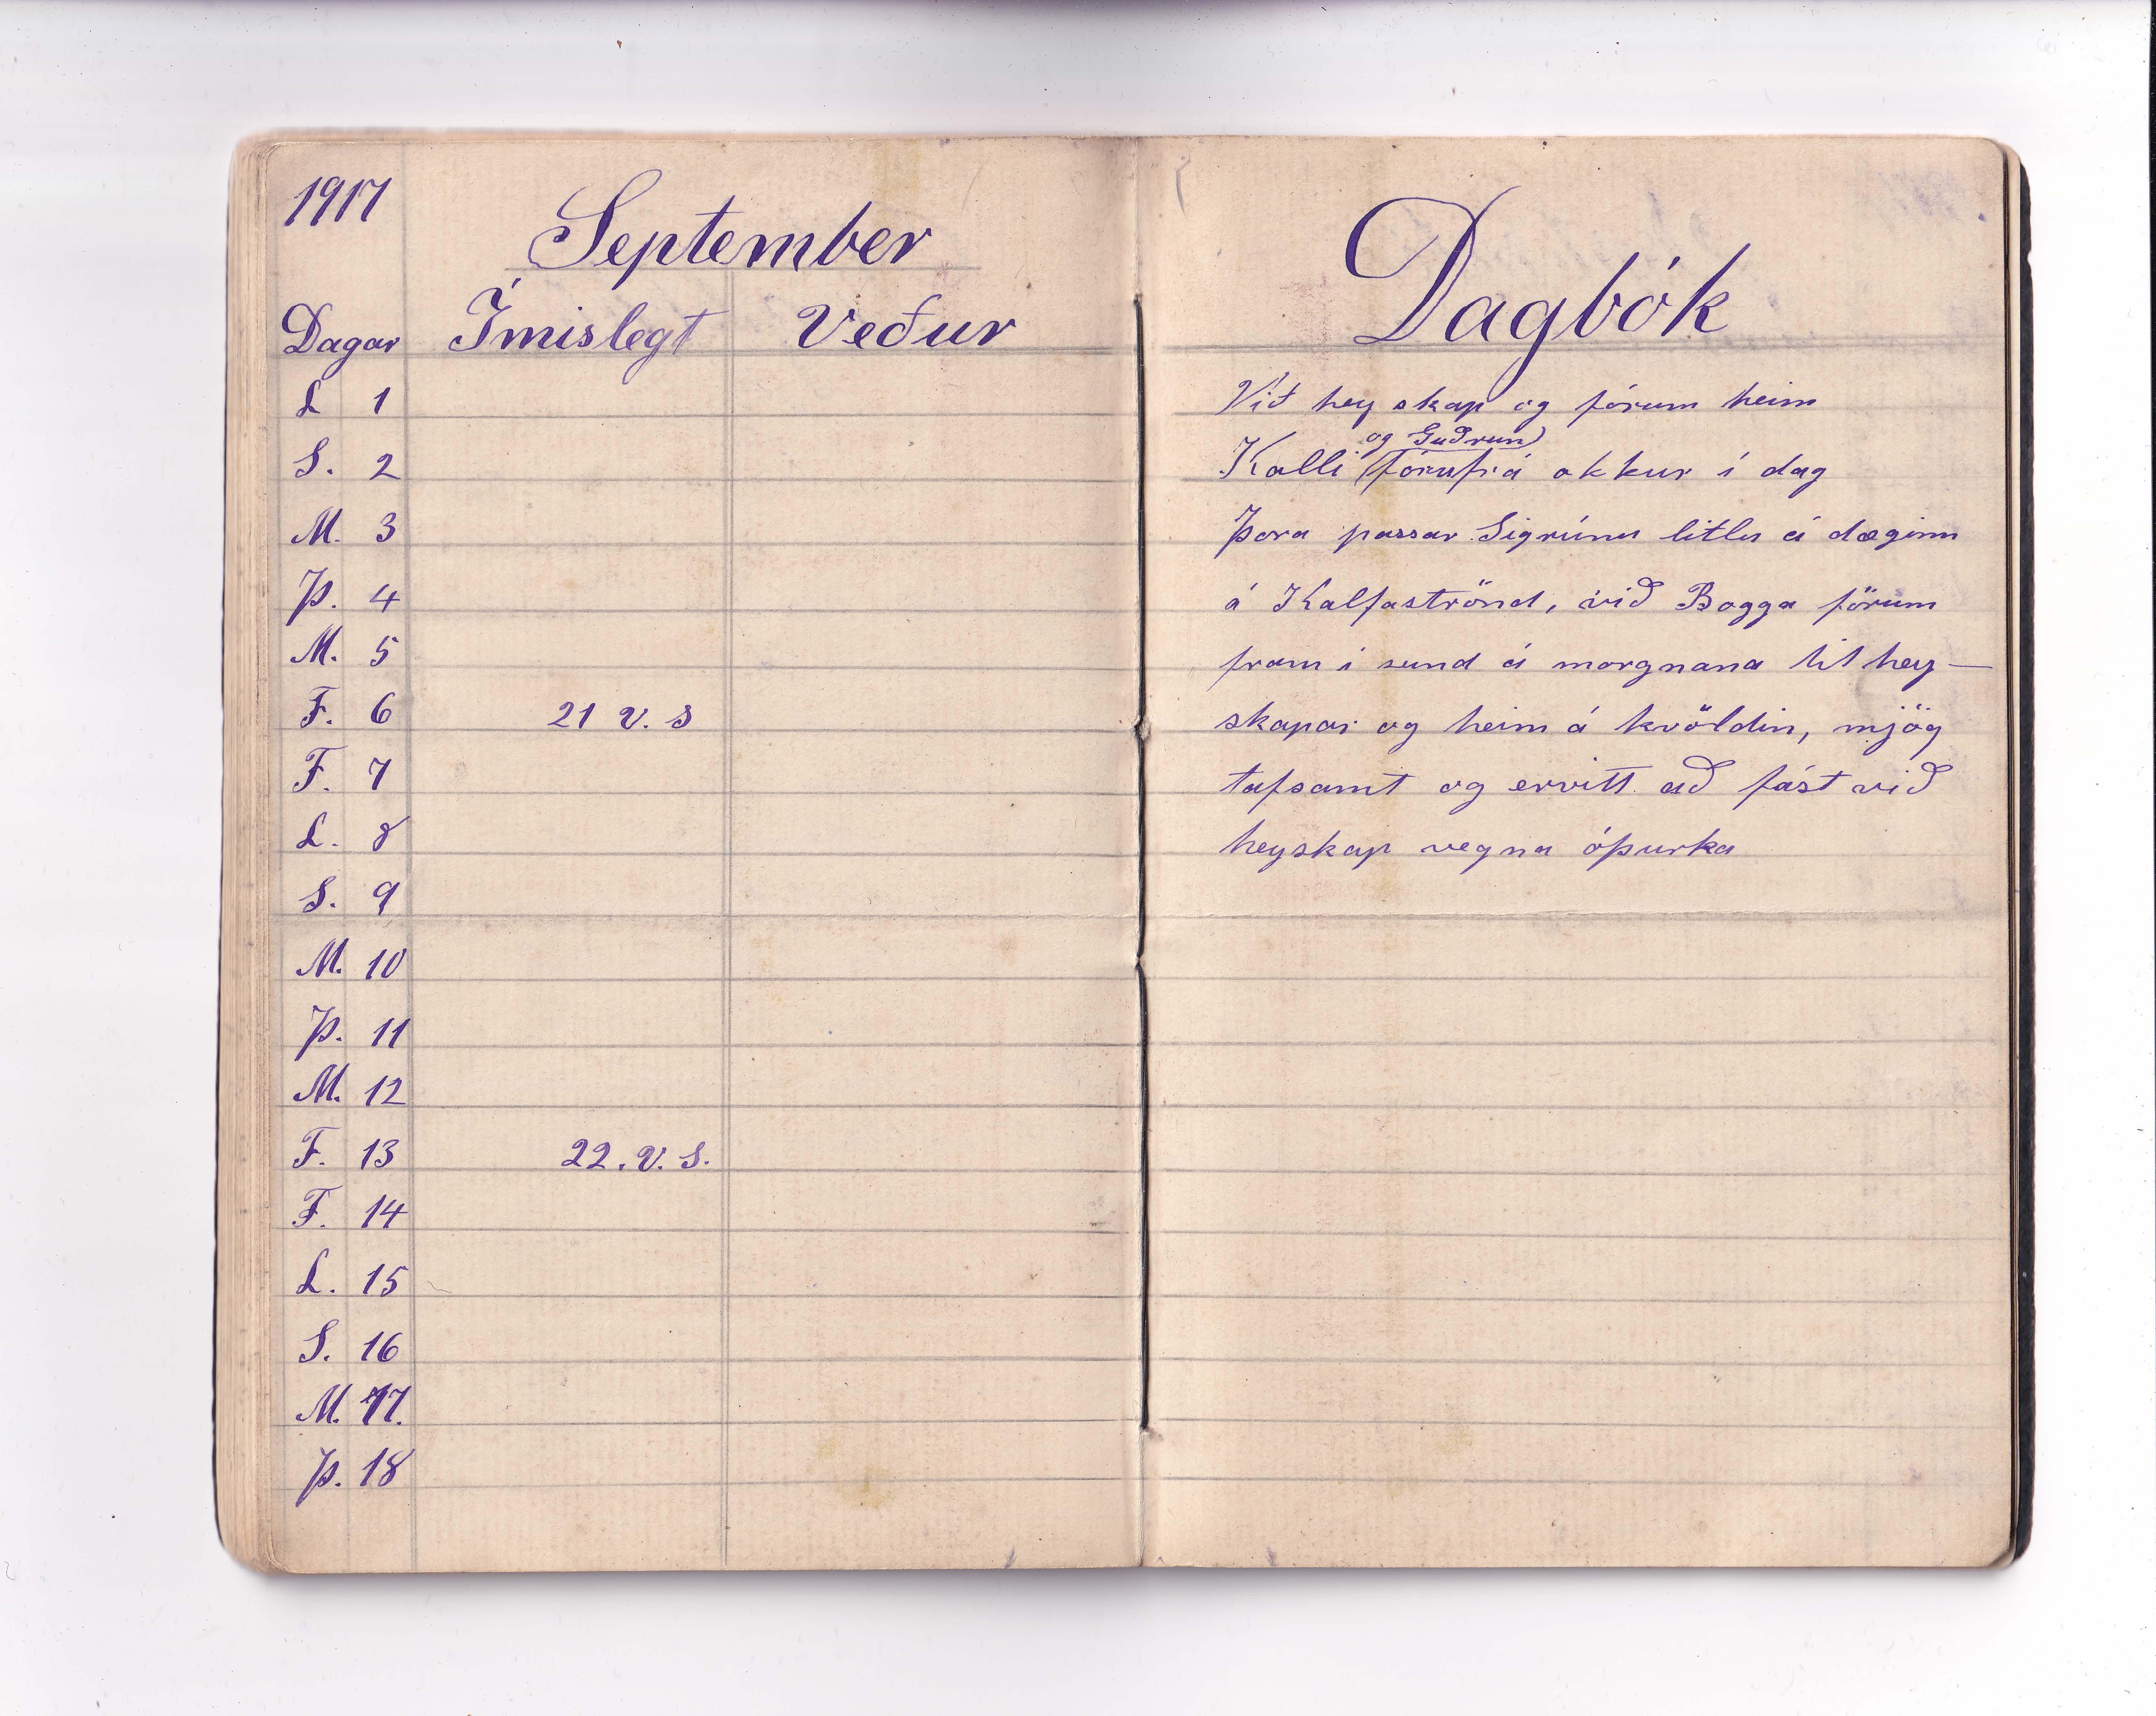 1917
September
Dagar Ímislegt Veður
L 1
S. 2
M. 3
Þ. 4
M. 5
F. 6 21 V. S
F. 7
L. 8
S. 9
M. 10
Þ. 11
M. 12
F. 13 22. V. S.
F. 14
L. 15
S. 16
M. 17.
Þ. 18
Dagbók
Við hey skap og fórum heim
og Guðrun
Kalli fóru frá okkur í dag
Þora passar Sigrúnu litlu á daginn
á Kalfaströnd, við Bogga förum
fram í sund á morgnana til hey-
skapar og heim á kvöldin, mjög
tafsamt og ervitt að fást við
heyskap vegna óþurka